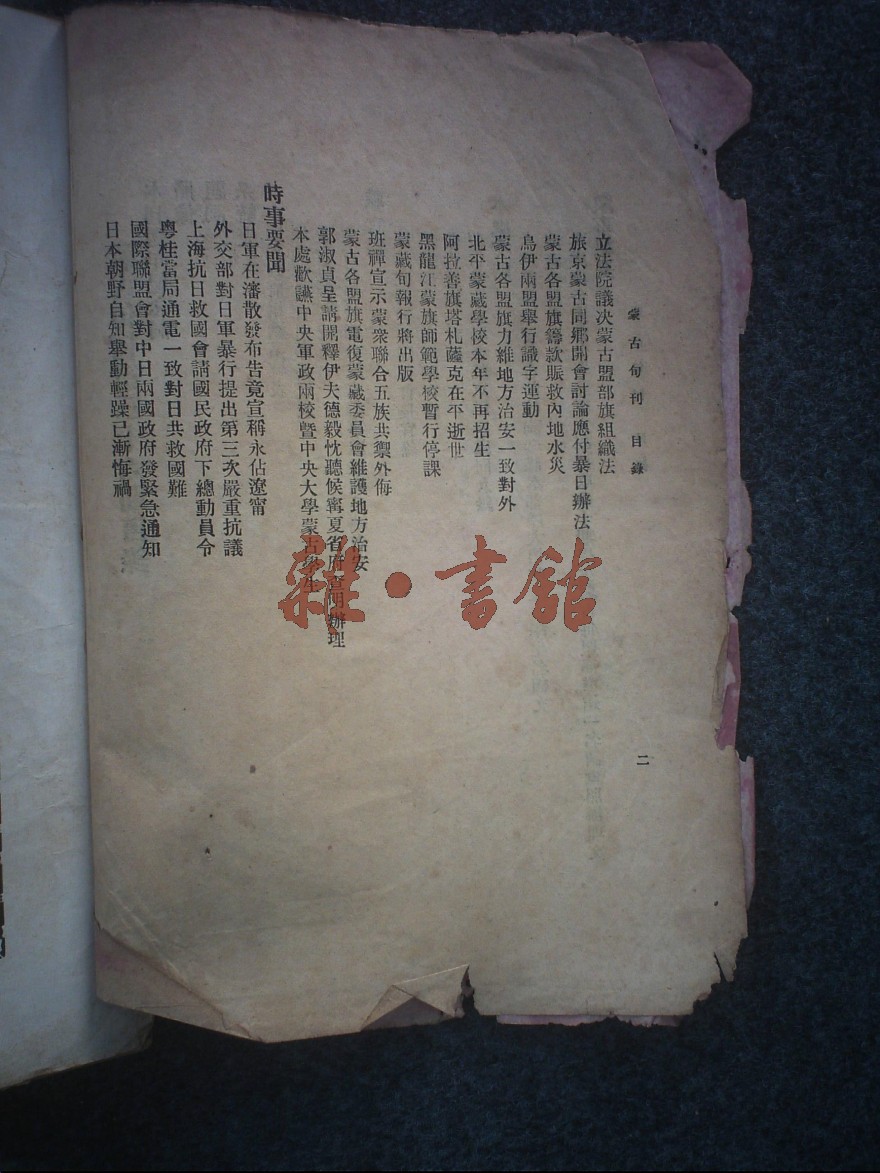 蒙古旬刊 目錄
二
立法院議决蒙古盟部旗組織法
旅京蒙古同鄉開會討論應付暴日辦法
蒙古各盟旗籌款賑救內地水災
烏伊兩盟舉行識字運動
蒙古各盟旗力維地方治安一致對外
北平蒙藏學校本年不再招生
阿拉善旗塔札薩克在平逝世
黑龍江蒙旗師範學校暫行停課
蒙藏旬報行將出版
班禪宣示蒙衆聯合五族共禦外侮
蒙古各盟旗電復蒙藏委員會維護地方治安
郭淑貞呈請開釋伊夫德毅忱聽候甯夏省府查明辦理
本處歡讌中央軍政兩校暨中央大學蒙古學生
時事要聞
日軍在瀋散發布告竟宣稱永佔遼甯
外交部對日軍暴行提出第三次嚴重抗議
上海抗日救國會請國民政府下總動員令
粵桂當局通電一致對日共救國難
國際聯盟會對中日兩國政府發緊急通知
日本朝野自知舉動輕躁已漸悔禍
雜·書館